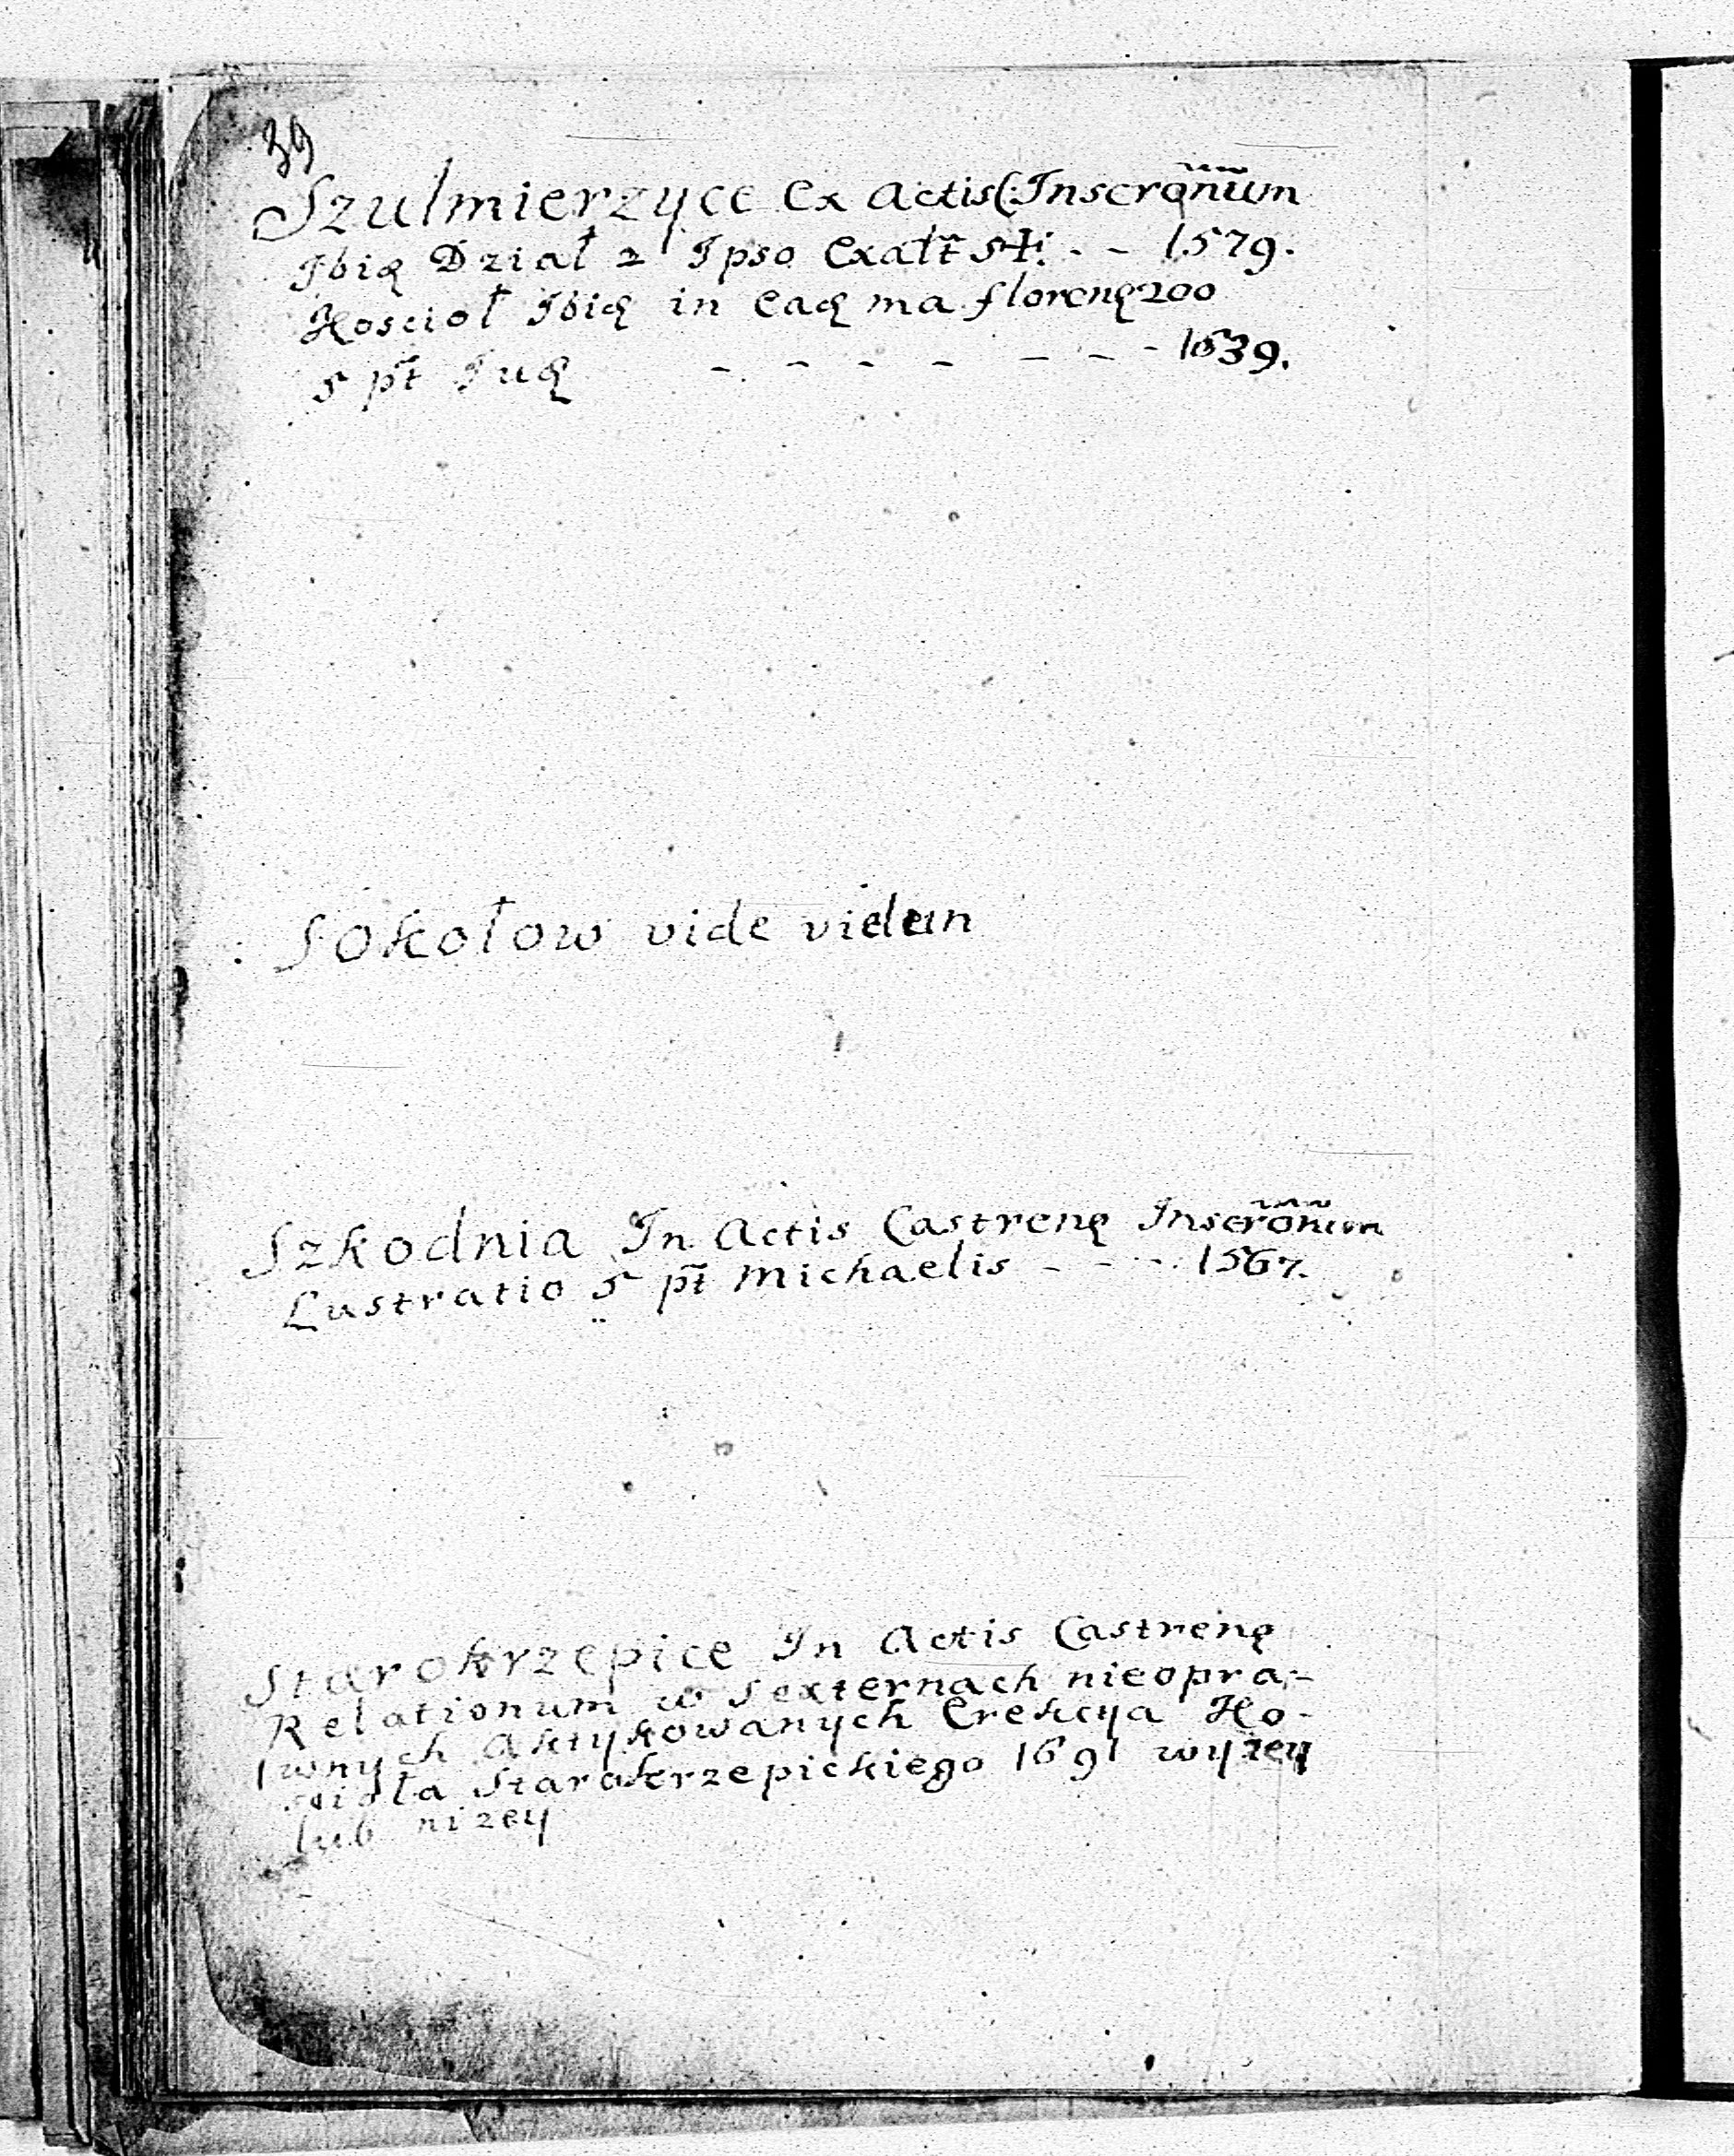 39
Szulmierzyce Ex Actis Inscrōnum
Ibiq Dział 2 Ipso Exalt̃ S✝: - - 1579.
Kosciol Ibiq in eaq ma florenq 200
5 pt̃ Juq - - - - - - - 1539.
Sokołow vide vidun
Szkodnia In Actis Castrenq Inscrōnum
Lustratio 5 pt̃ Michaelis - - - 1567.
Starokrzepice In Actis Castrenq
Relationum w Sexternach nieopra-
wnych Aktykowanych Erekcya Ko-
sciola Starokrzepickiego 1691 wyzey
lub nizey